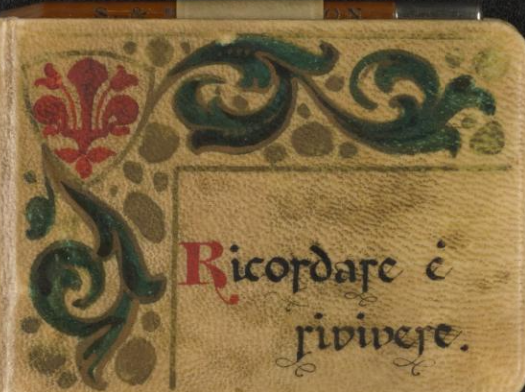 Ricordare é
rivivere.